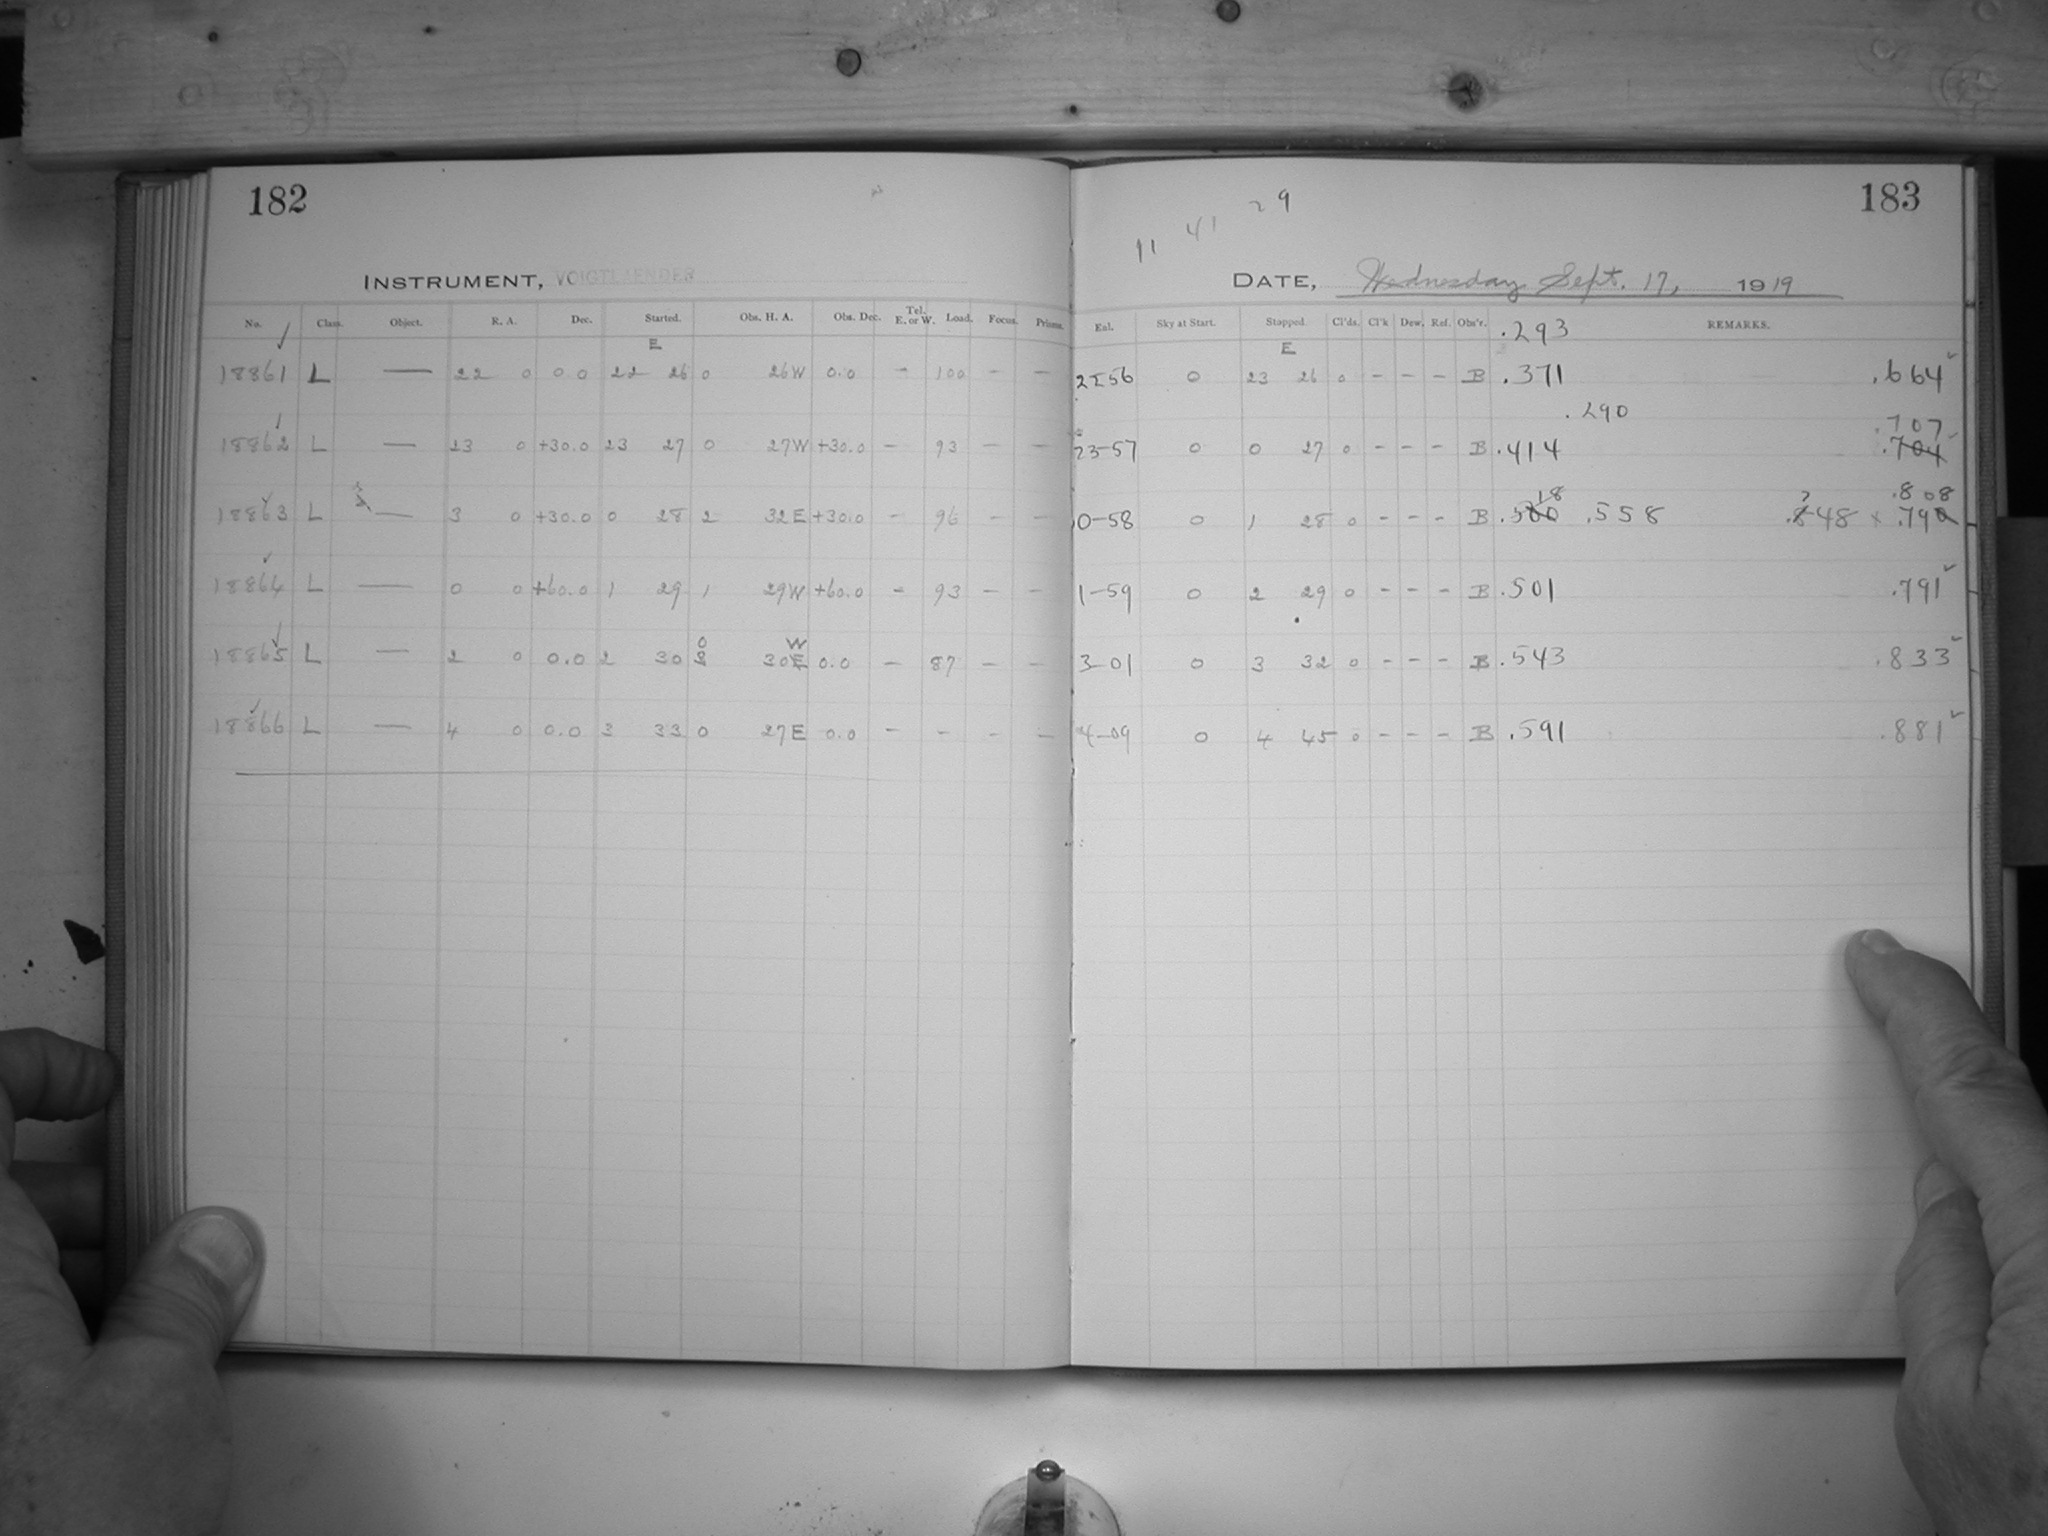 182
INSTRUMENT, VOIGTLAENDER
No. Class. Object. R. A. Dec. Started. Obs. H. A. Obs. Dec. Tel. E. or W. Load. Focus. Prisms.
E
18861 L — 22 0 0.0 22 26 0 26W 0.0 - 100 - -
18862 L — 23 0 +30.0 23 27 0 27W +30.0 - 93 - -
18863 L — 3 0 +30.0 0 28 2 32E +30.0 - 96 - -
18864 L — 0 0 +60.0 1 29 1 29W +60.0 - 93 - -
0 W
18865 L — 2 0 0.0 2 30 3 30E 0.0 - 87 - -
18866 L — 4 0 0.0 3 33 0 27E 0.0 - - - -
183
11 41 29
DATE, Wednesday Sept. 17, 1919
Eal. Sky at Start. Stopped. Cl'ds. Cl'k Dew. Ref. Obs'r. .293 REMARKS.
E
22-56 0 23 26 0 - - - B .371 .664
.290
.707
23-57 0 0 27 0 - - - B .414 .704
18 7 .808
0-58 0 1 28 0 - - - B .500 .558 .848 x .790
1-59 0 2 29 0 - - - B .501 .791
3-01 0 3 32 0 - - - B .543 .833
4-09 0 4 45 0 - - - B .591 .881